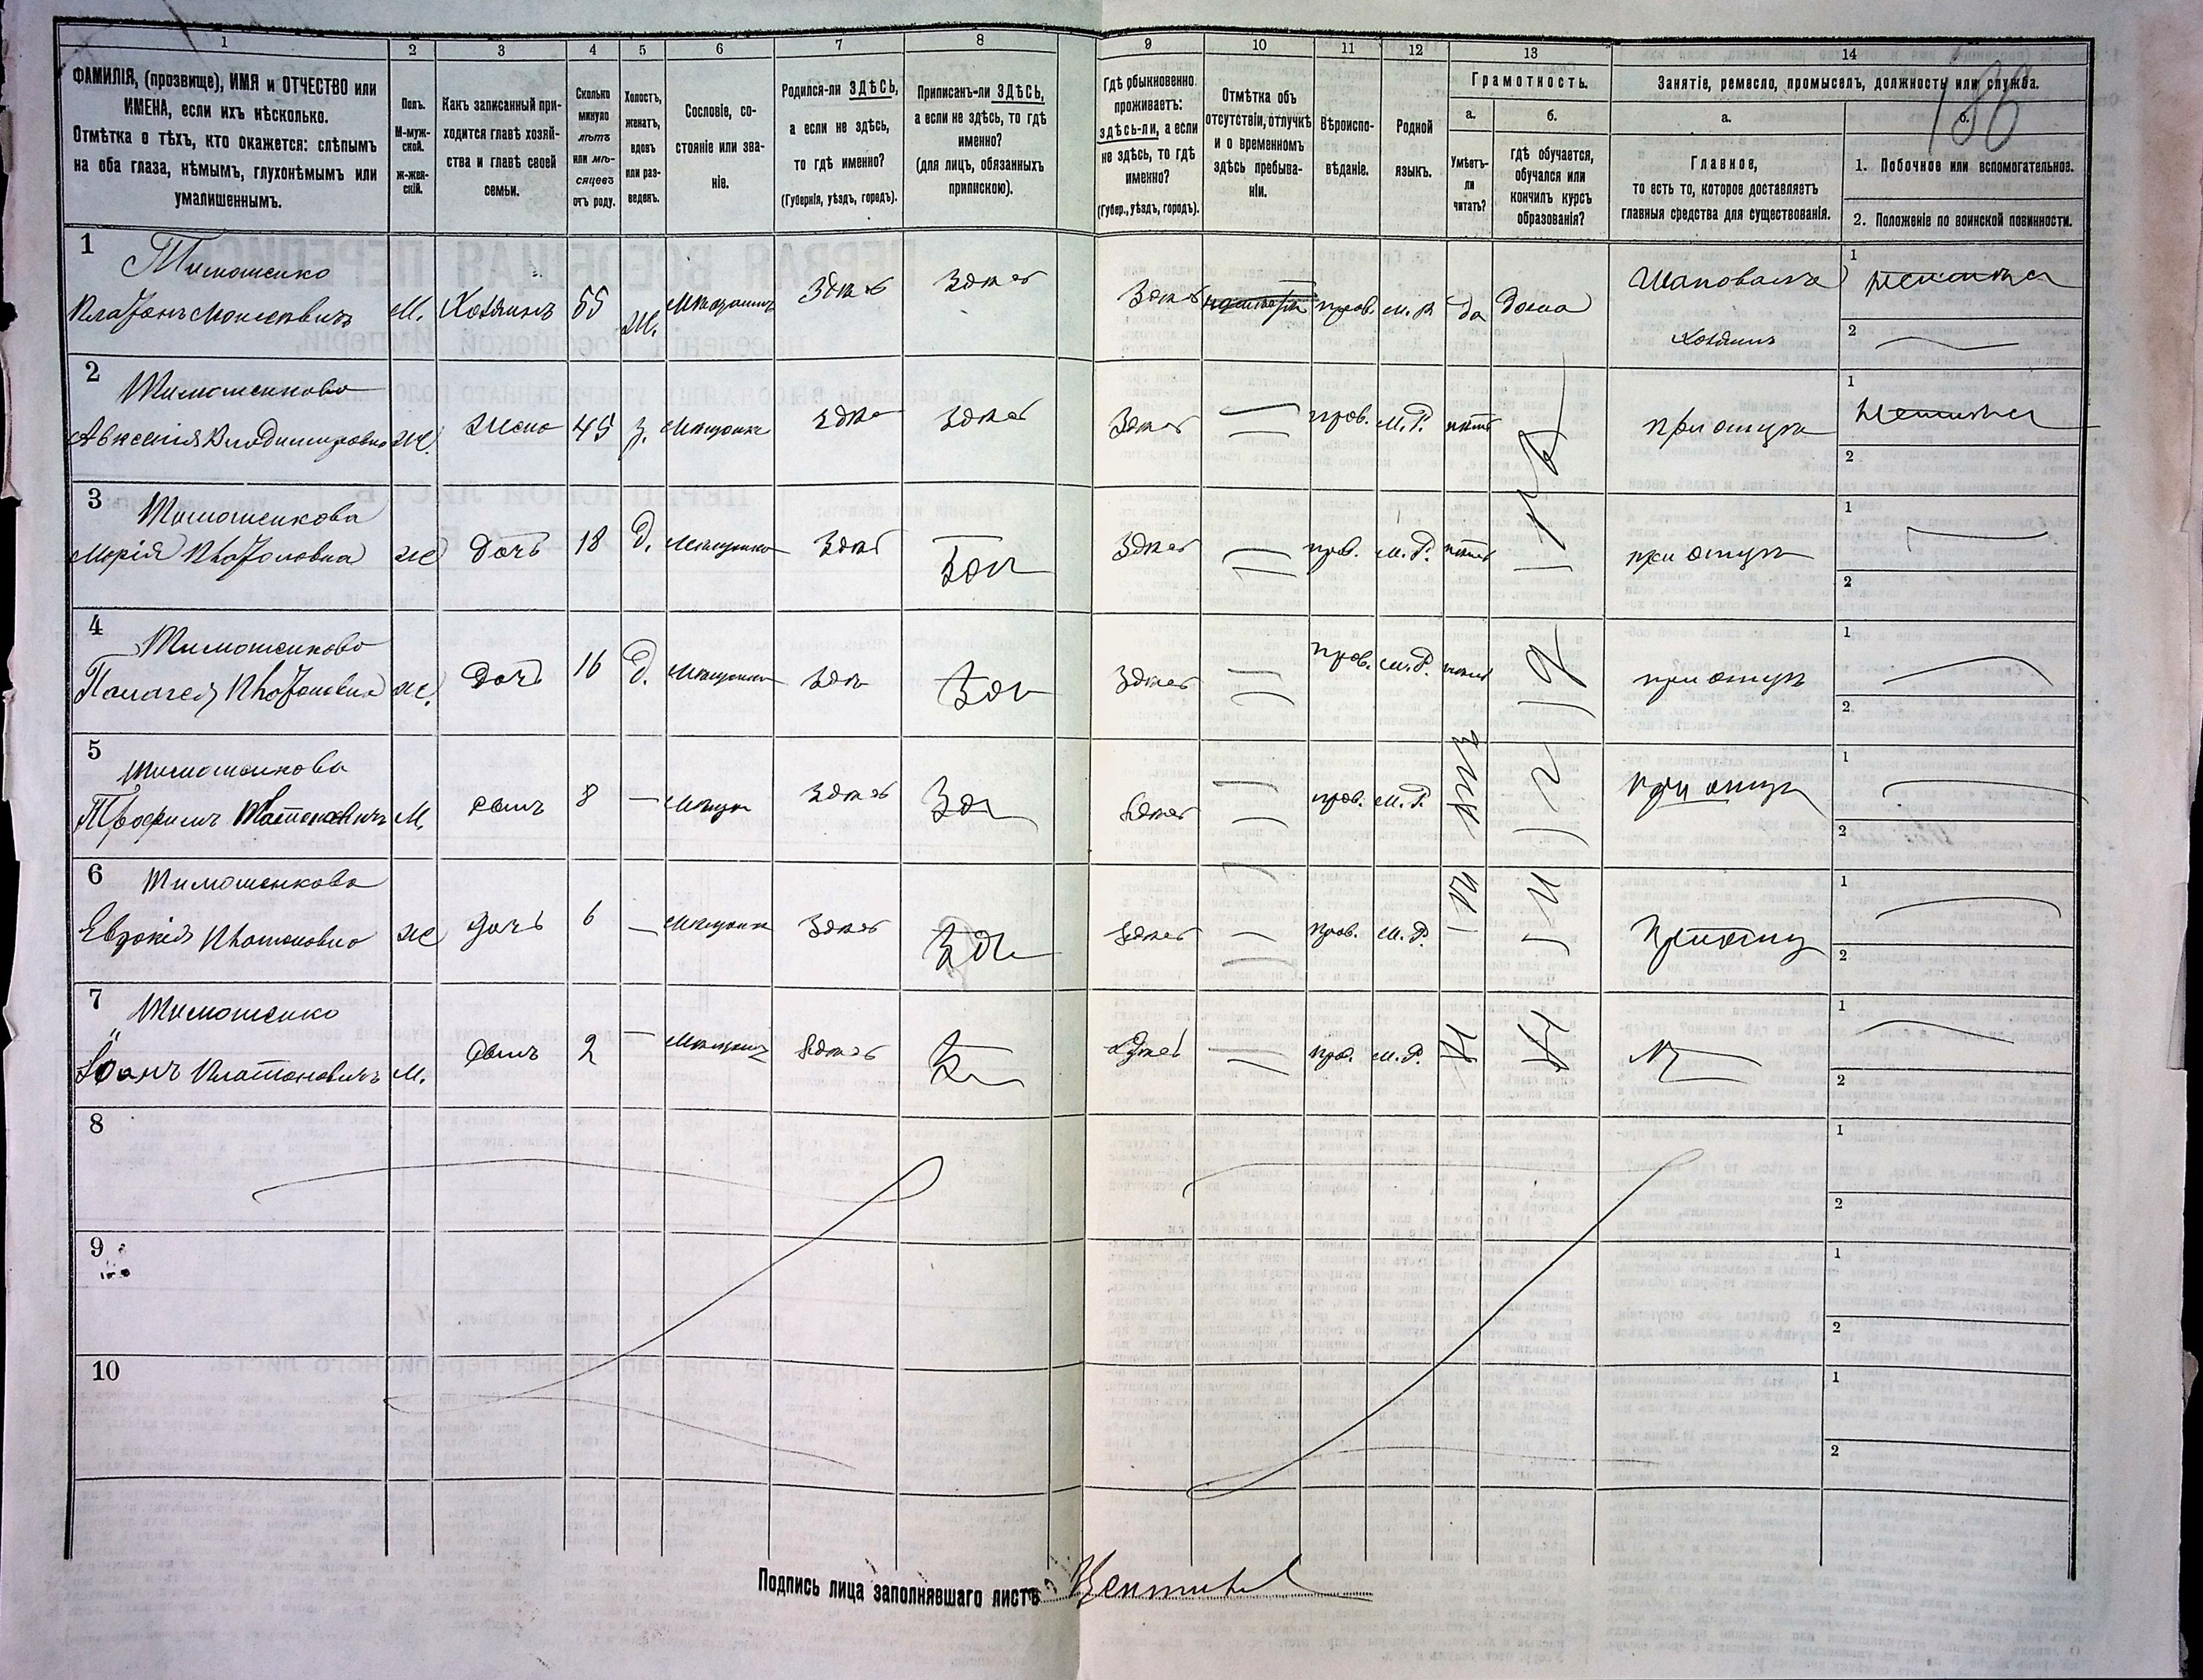 1 2 3 4 5 6 7 8 9 10 11 12 13 14
ФАМИЛІЯ, (прозвище), ИМЯ и ОТЧЕСТВО или
ИМЕНА, если ихъ нѣсколько.
Отмѣтка о тѣхъ, кто окажется: слѣпымъ
на оба глаза, нѣмымъ, глухонѣмымъ или
умалишеннымъ.
Полъ.
М-муж-
ской.
Ж-жен-
скій.
Какъ записанный при-
ходится главѣ хозяй-
ства и главѣ своей
семьи.
Сколько
минуло
лѣтъ
или мѣ-
сяцевъ
отъ роду.
Холостъ,
женатъ,
вдовъ
или раз-
веденъ.
Сословіе, со-
стояніе или зва-
ніе.
Родился-ли ЗДѢСЬ,
а если не здѣсь,
то гдѣ именно?
(Губернія, уѣздъ, городъ).
Приписанъ-ли ЗДѢСЬ,
а если не здѣсь, то гдѣ
именно?
(для лицъ, обязанныхъ
припискою).
Гдѣ обыкновенно
проживаетъ:
здѣсь-ли, а если
не здѣсь, то гдѣ
именно?
(Губер., уѣздъ, городъ).
Отмѣтка объ
отсутствіи, отлучкѣ
и о временномъ
здѣсь пребыва-
ніи.
Вѣроиспо-
вѣданіе.
Родной
языкъ.
Грамотность.
а.
Умѣетъ-
ли
читать?
б.
гдѣ обучается,
обучался или
кончилъ курсъ
образованія?
Занятіе, ремесло, промыселъ, должность или служба.
186
а.
Главное,
то есть то, которое доставляетъ
главныя средства для существованія.
б.
1. Побочное или вспомогательное.
2. Положеніе по воинской повинности.
1 Тимошенко
Платонъ Моисеевичъ М. Хозяинъ 55 Ж. Мѣщанинъ Здѣсь Здѣсь Здѣсь прав. м. р. да дома Шаповалъ
хозяинъ
1
2
2 Тимошенкова
Авксентія Владимировна Ж. Жена 45 З. Мѣщанка Здѣсь Здѣсь Здѣсь прав. М. Р. нѣтъ при мужѣ
1
2
3 Тимошенкова
Марія Платоновна Ж Дочь 18 Д. Мѣщанка Здѣсь Здѣсь Здѣсь прав. М. Р. нѣтъ при отцѣ
1
2
4 Тимошенкова
Палагея Платоновна Ж. Дочь 16 Д. Мѣщанка Здѣсь Здѣсь Здѣсь прав. М. Р. нѣтъ при отцѣ
1
2
5 Тимошенкова
Трофимъ Платоновичъ М. сынъ 8 — Мѣщан Здѣсь Здѣсь Здѣсь прав. М. Р. нѣтъ при отцѣ
1
2
6 Тимошенкова
Евдокія Платоновна Ж дочь 6 — Мѣщанка Здѣсь Здѣсь Здѣсь прав. М. Р. при отцѣ
1
2
7 Тимошенко
Іоанъ Платоновичъ М. Сынъ 2 — Мѣщанин Здѣсь Здѣсь прав. М. Р.
1
2
8
1
2
9
1
2
10
1
2
Подпись лица заполнявшаго листъ